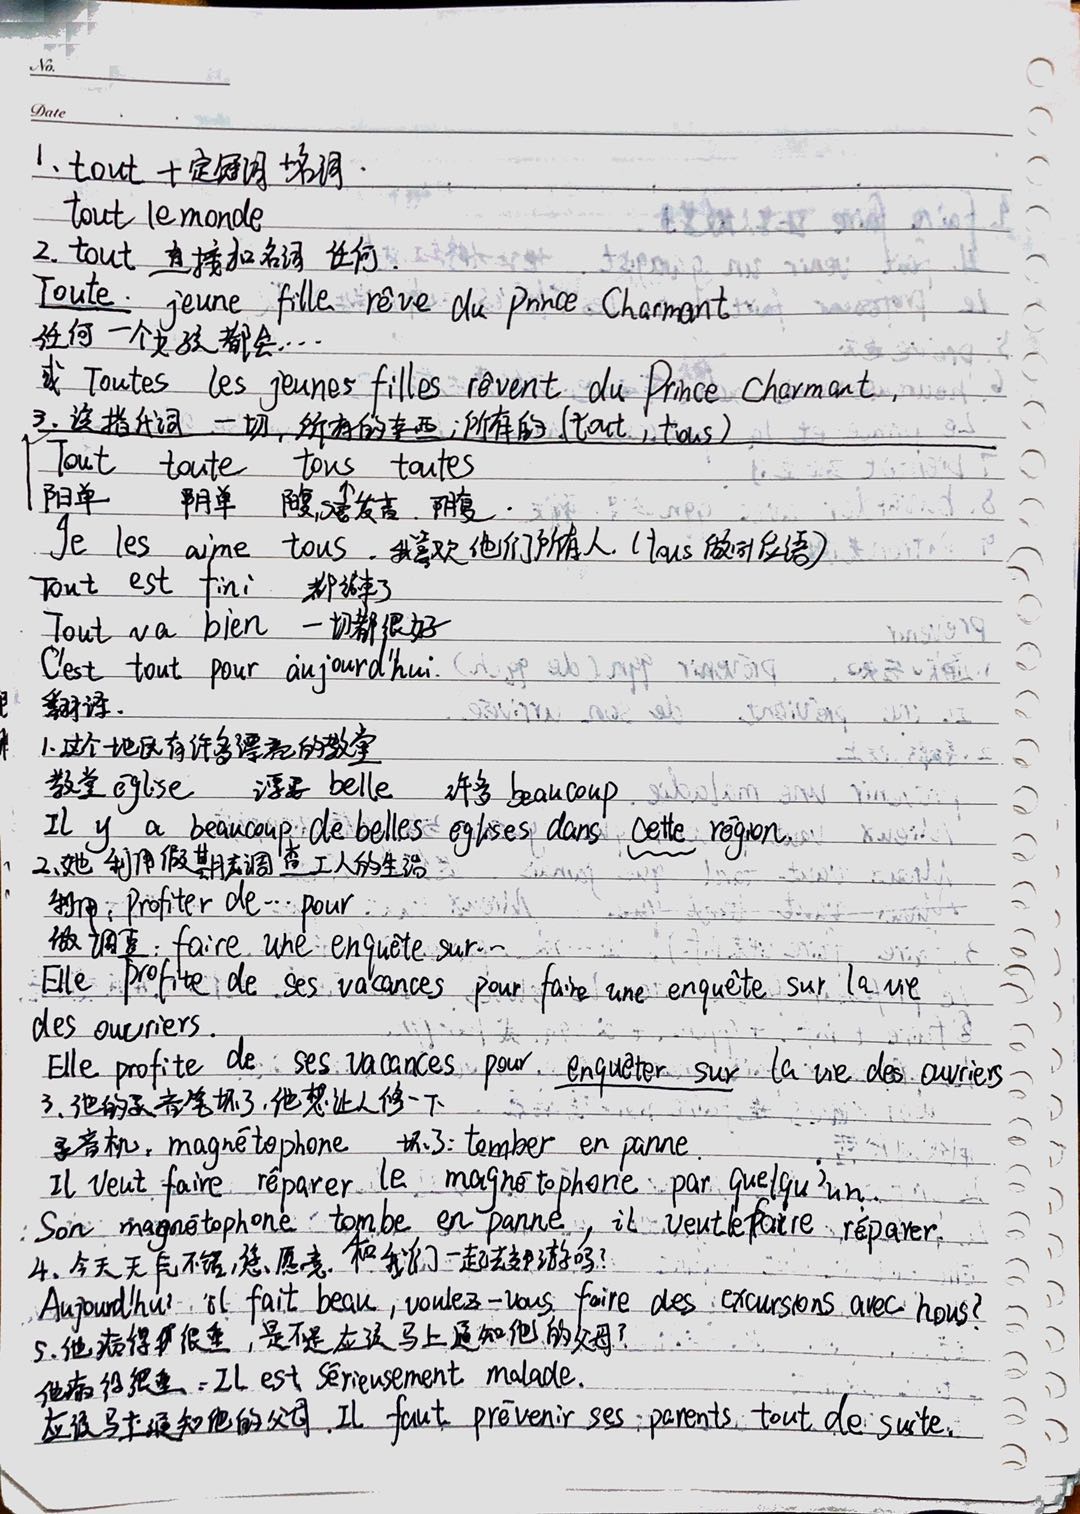 No.
Date
1、tout + 定冠词 + 名词.
tout le monde
2. tout 直接加名词 任何.
Toute. jeune fille rêve du Prince Charmant
任何一个女孩都会....
或 Toutes les jeunes filles rêvent du Prince Charmant.
3. 泛指代词 一切, 所有的东西;所有的 (tout, tous)
Tout toute tous toutes
阳单 阴单 阳复, s要发音. 阴复.
Je les aime tous. 我喜欢他们所有人. (tous 做同位语)
Tout est fini 都结束了
Tout va bien 一切都很好
C'est tout pour aujourd'hui.
翻译.
1.这个地区有许多漂亮的教堂
教堂 église 漂亮 belle 许多 beaucoup
Il y a beaucoup de belles églises dans cette région.
2、她利用假期去调查工人的生活
利用: profiter de … pour
做调查: faire une enquête sur…
Elle profite de ses vacances pour faire une enquête sur la vie
des ouvriers.
Elle profite de ses vacances pour enquêter sur la vie des ouvriers
3、他的录音笔坏了,他想让人修一下
录音机: magnétophone 坏了: tomber en panne.
Il veut faire réparer le magnétophone par quelqu'un.
Son magnétophone tombe en panne, il veut le faire réparer.
4、今天天气不错,您愿意和我们一起去郊游吗?
Aujourd'hui il fait beau, voulez-vous faire des excursions avec nous?
5.他病得很重,是不是应该马上通知他的父母?
他病得很重: Il est sérieusement malade.
应该马上通知他的父母. Il faut prévenir ses parents tout de suite.